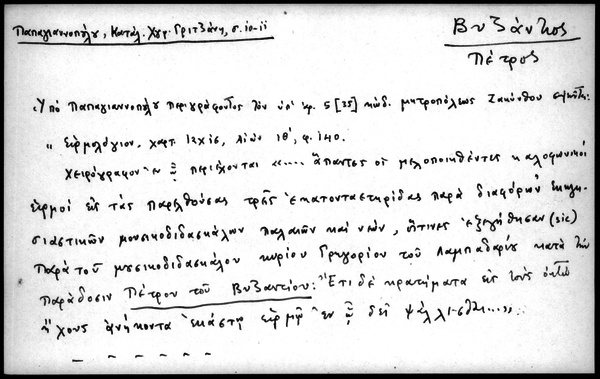 Παπαγιαννοπούλου, Κατάλ. Χφφ. Γριτσάνη, σ. 10-11
Βυζάντιος
Πέτρος
Ὑπὸ Παπαγιαννοπούλου περιγράφοντος τὸν ὑπ' ἀρ. 5 [35] κώδ. μητροπόλεως Ζακύνθου
" Εἱρμολόγιον. χαρτ. 12Χ16, Αἰών ΙΘ', φ. 140.
Χειρόγραφον περιέχονται «.... ἅπαντες οἱ μελοποιηθέντες καλοφωνικοί
εἱρμοί εἰς τὰς παρελθούσας τρεῖς ἑκατονταετηρίδας παρὰ διαφόρων ἐκκλη-
σιαστικῶν μουσικοδιδασκάλων παλαιῶν καὶ νέων, οἵτινες ἐξηγήθησαν (sic)
παρὰ τοῦ μουσικοδιδασκάλου κυρίου Γρηγορίου τοῦ Λαμπαδαρίου κατὰ τὴν
παράδοσιν Πέτρου τοῦ Βυζαντίου: Ἔτι δὲ κρατήματα εἰς τοὺς ὀκτὼ
ἤχους ἀνήκοντα ἑκάστῳ εἱρμῷ ἐν δεῖ ψάλλεσθαι...»